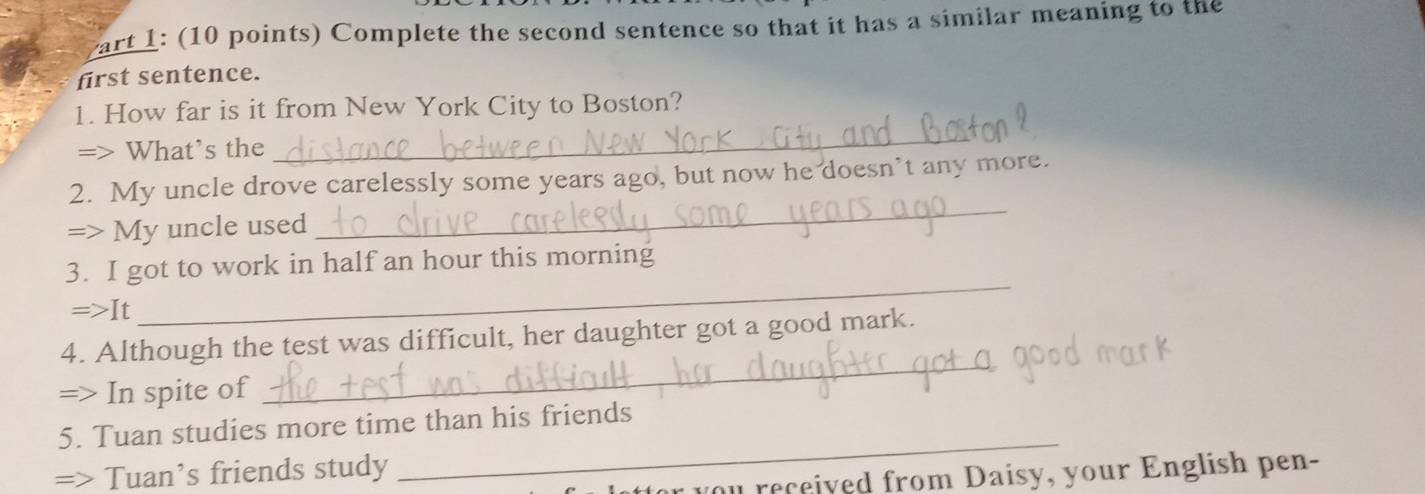 art 1: (10 points) Complete the second sentence so that it has a similar meaning to the
first sentence.
1. How far is it from New York City to Boston?
=> What's the distance between New York City and Boston?
2. My uncle drove carelessly some years ago, but now he doesn't any more.
=> My uncle used to drive carelessly some years ago
3. I got to work in half an hour this morning
=>It
4. Although the test was difficult, her daughter got a good mark.
=> In spite of the test was difficult, her daughter got a good mark
5. Tuan studies more time than his friends
=> Tuan's friends study
you received from Daisy, your English pen-